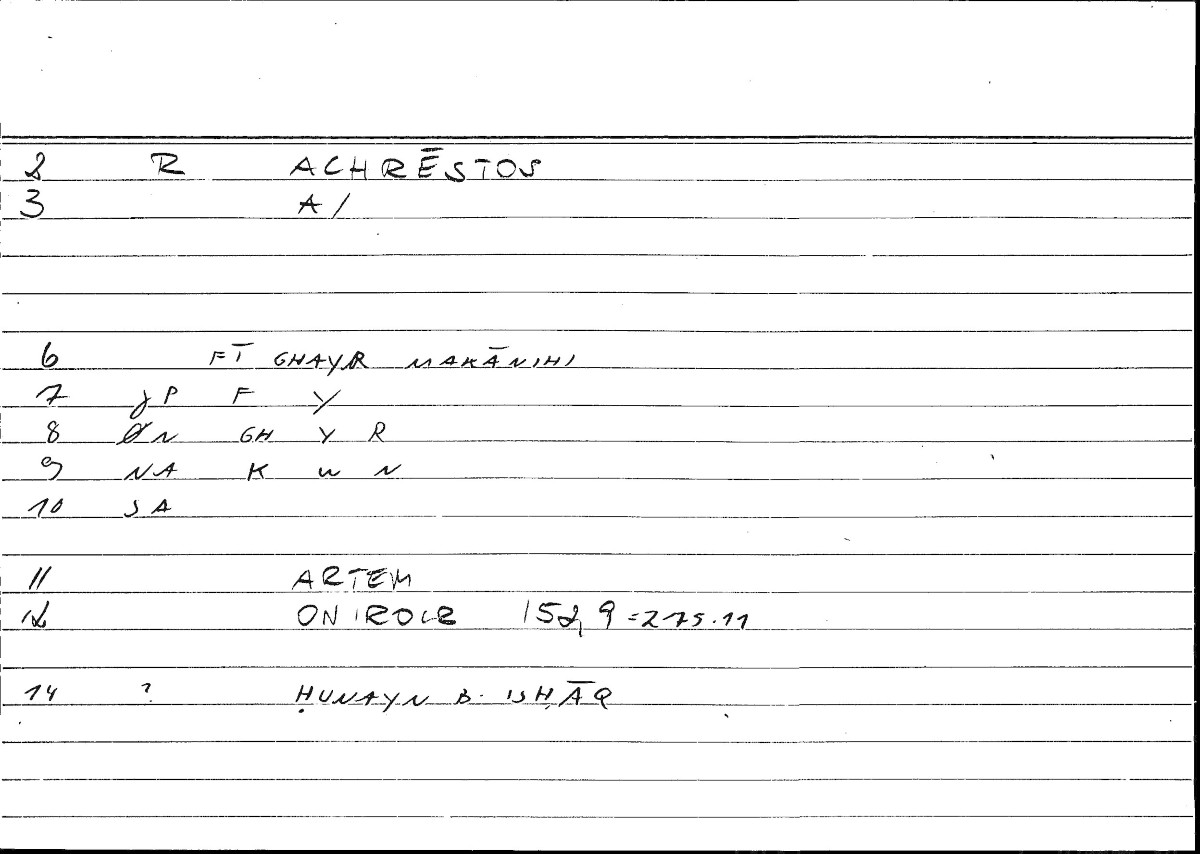 2 R ACHRĒSTOS
3 A/
6 FĪ GHAYR MAKĀNIHI
7 JP F Y
8 ØN GH Y R
9 NA K W N
10 SA
11 ARTEM
12 ONIROCR 152,9=275.11
14 ? ḤUNAYN B. ISḤĀQ